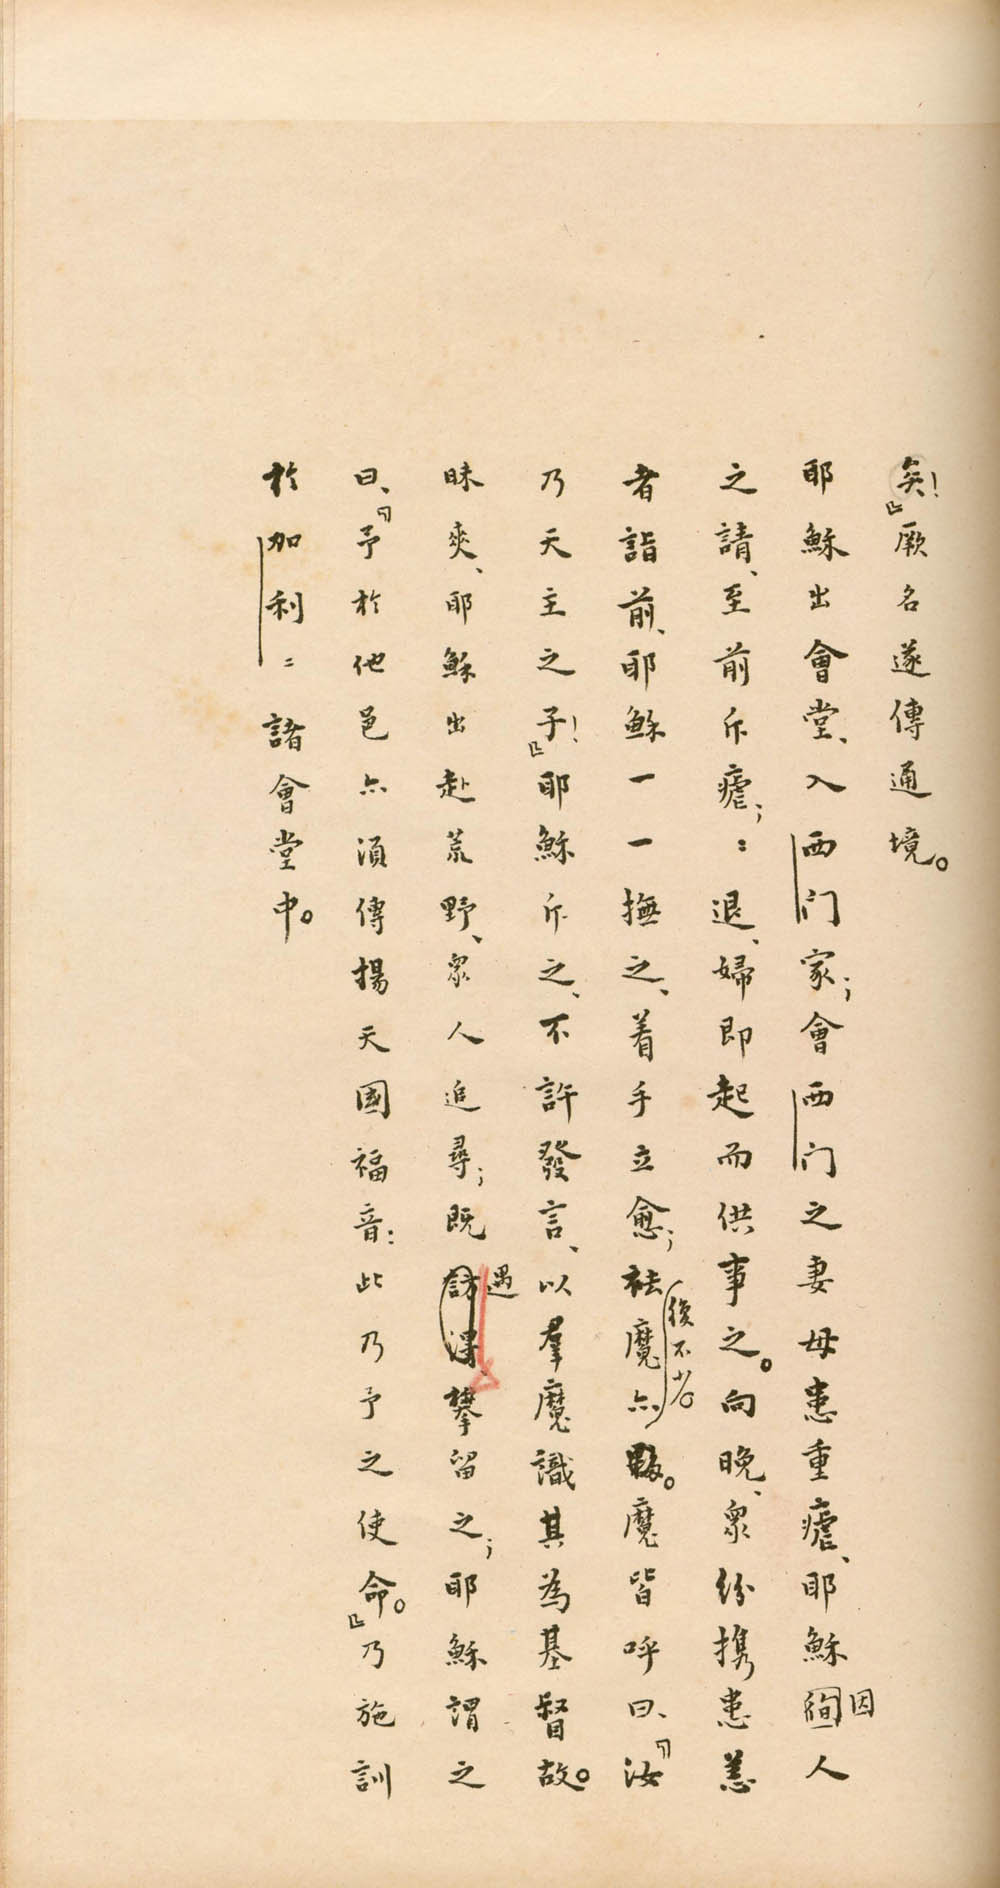 矣！』厥名遂傳通境。
耶穌出會堂、入西门家；會西门之妻母患重瘧、耶穌徇因人
之請、至前斥瘧；：退、婦即起而供事之。向晚、衆紛携患恙
者詣前、耶穌一一撫之、着手立愈；祛魔亦夥。後不少。魔皆呼曰、『汝
乃天主之子！』耶穌斥之、不許發言、以羣魔識其為基督故。
昧爽、耶穌出赴荒野、衆人追尋；既訪得、遇攀留之；耶穌謂之
曰、『予於他邑亦須傳揚天國福音：此乃予之使命。』乃施訓
於加利：諸會堂中。